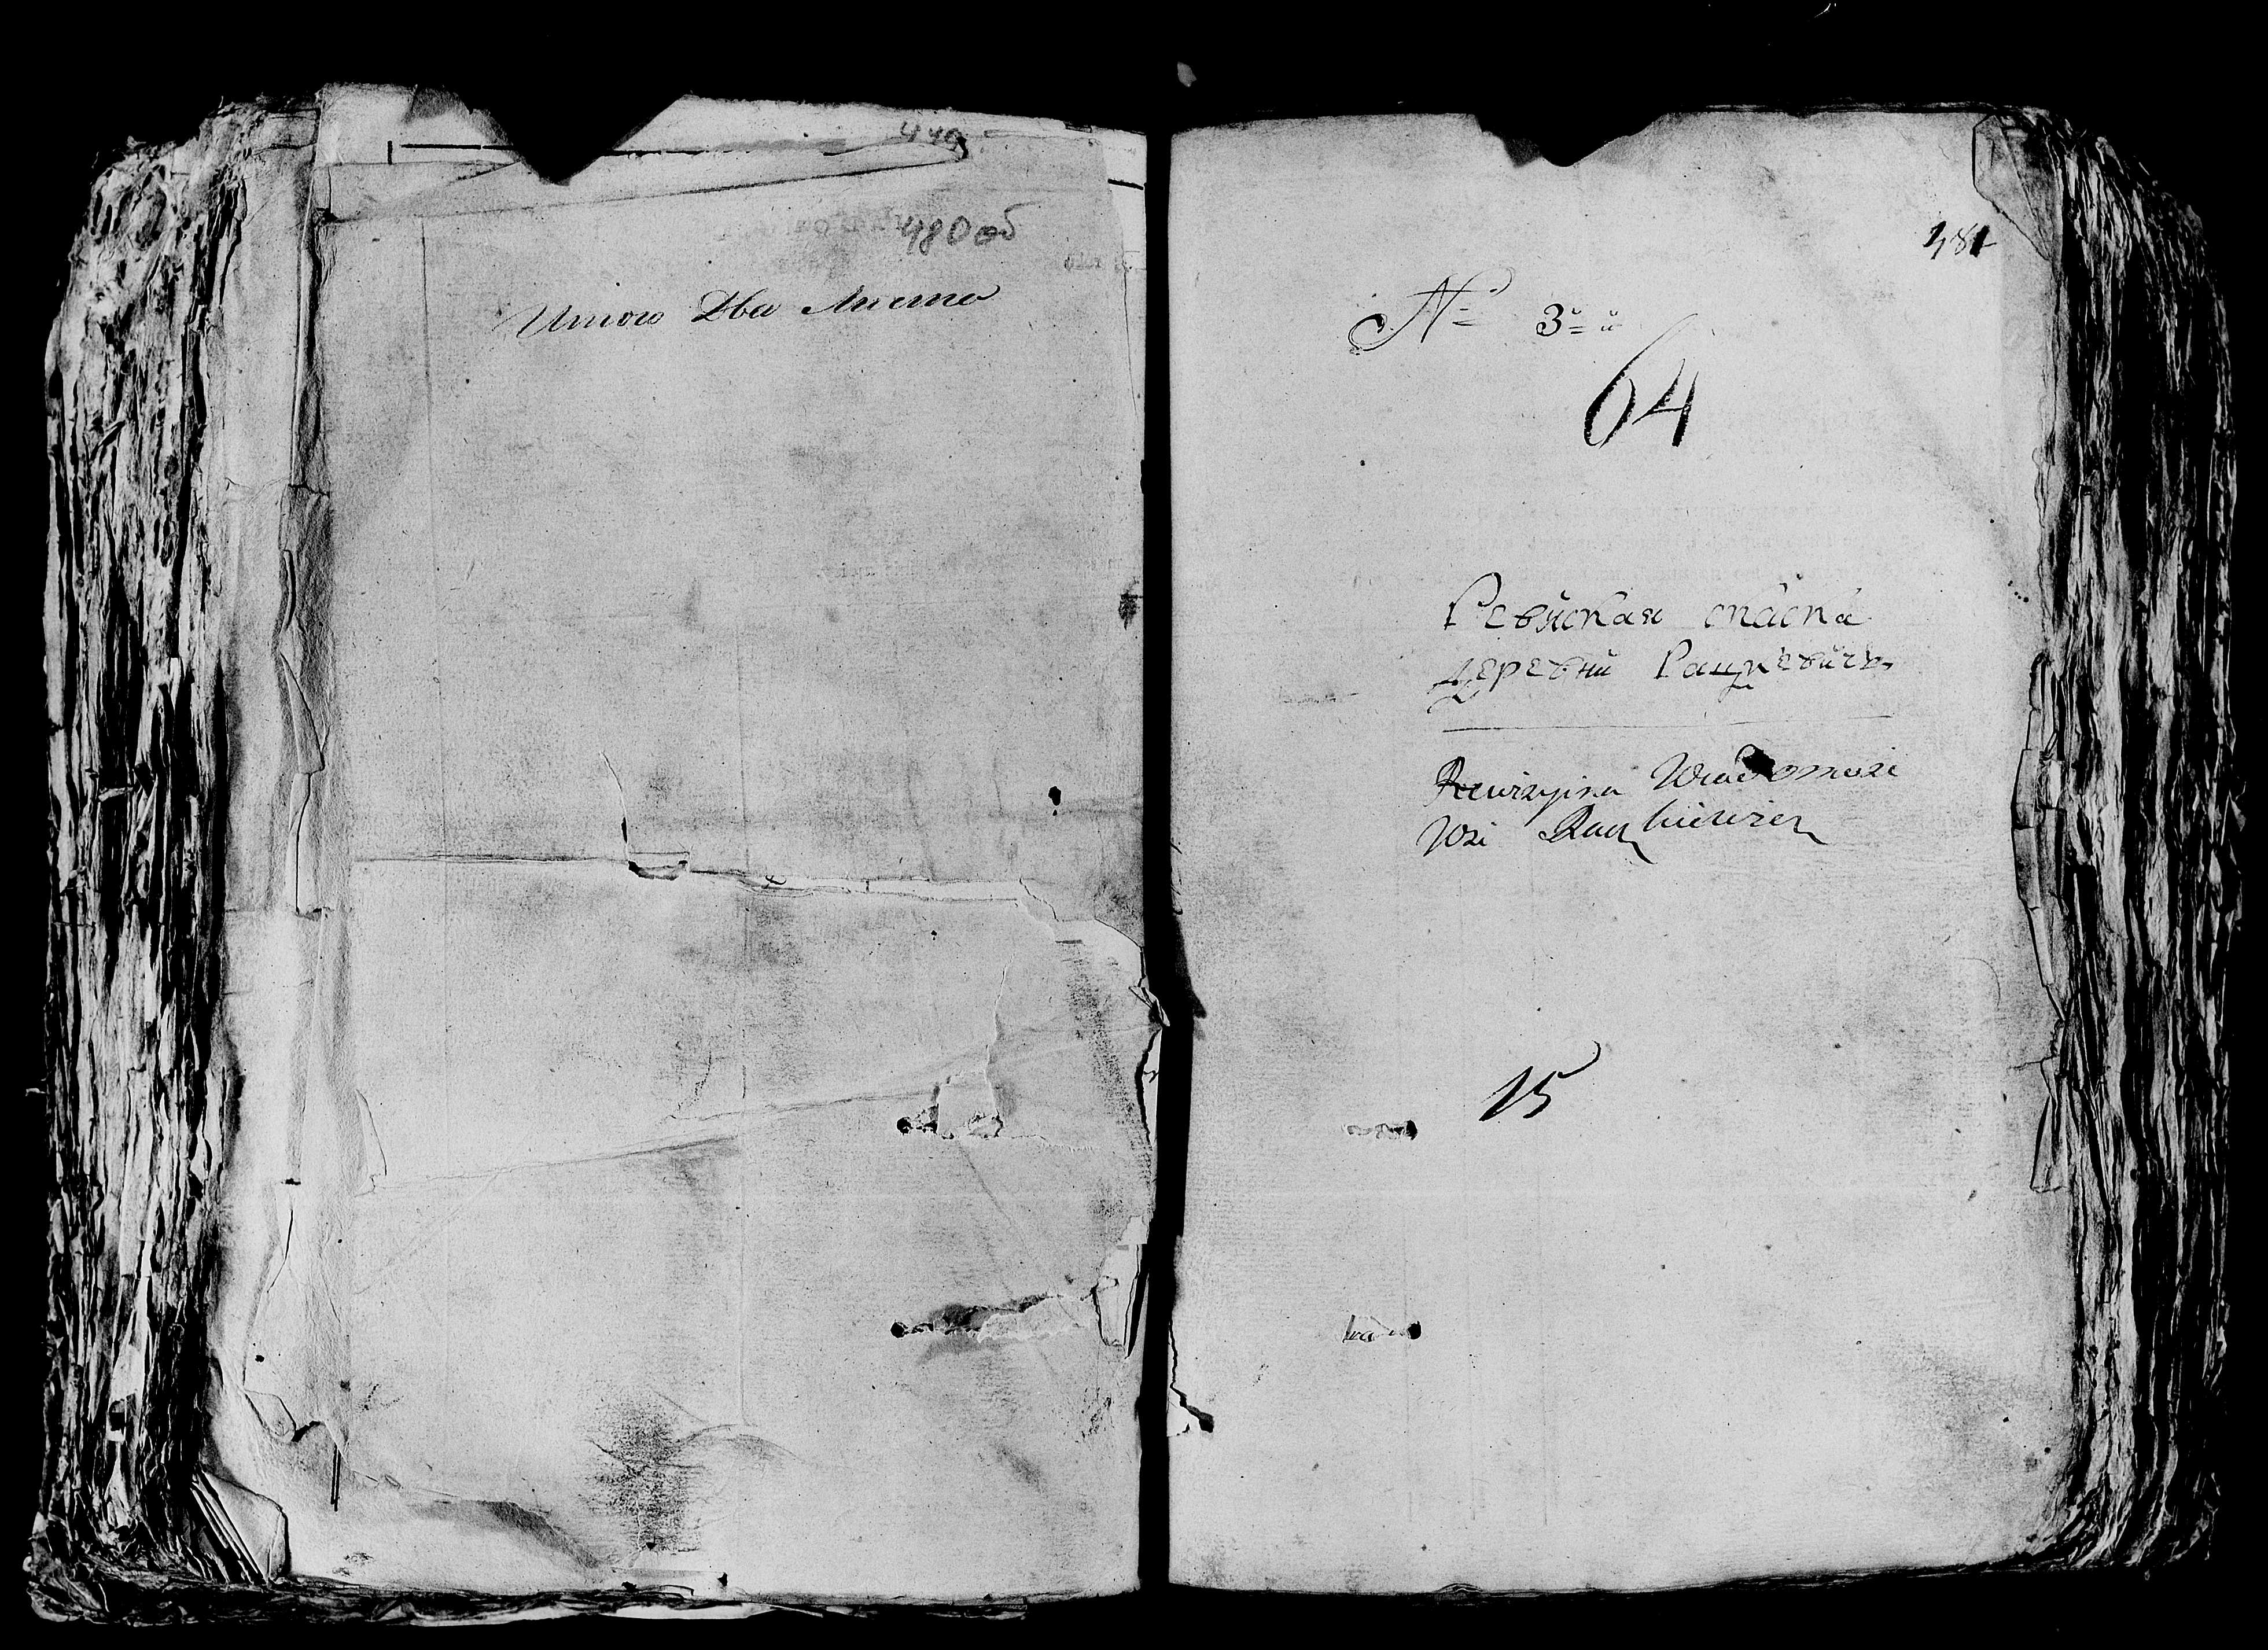 480об
Итого Два листа
481
№ 3й
64
Ревиская скаска
деревни Рацкевичъ
Rewizyina Wiadomosc
Wsi Rackiewicz
15